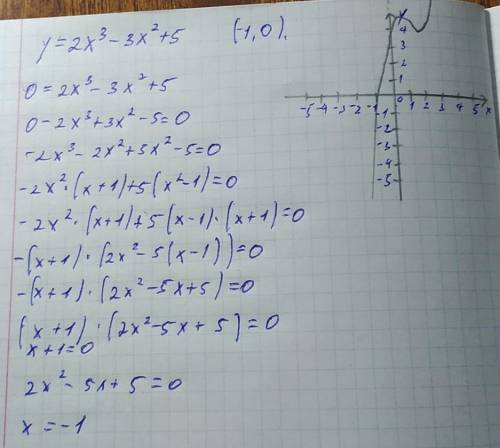 y=2x³-3x²+5 (-1,0).
0=2x³-3x²+5
0-2x³+3x²-5=0
-2x³-2x²+5x²-5=0
-2x²·(x+1)+5(x²-1)=0
-2x²·(x+1)+5(x-1)·(x+1)=0
-(x+1)·(2x²-5(x-1))=0
-(x+1)·(2x²-5x+5)=0
(x+1)·(2x²-5x+5)=0
x+1=0
2x²-5x+5=0
x=-1
y
4
3
2
1
-5 -4 -3 -2 -1 0 1 2 3 4 5 x
-1
-2
-3
-4
-5